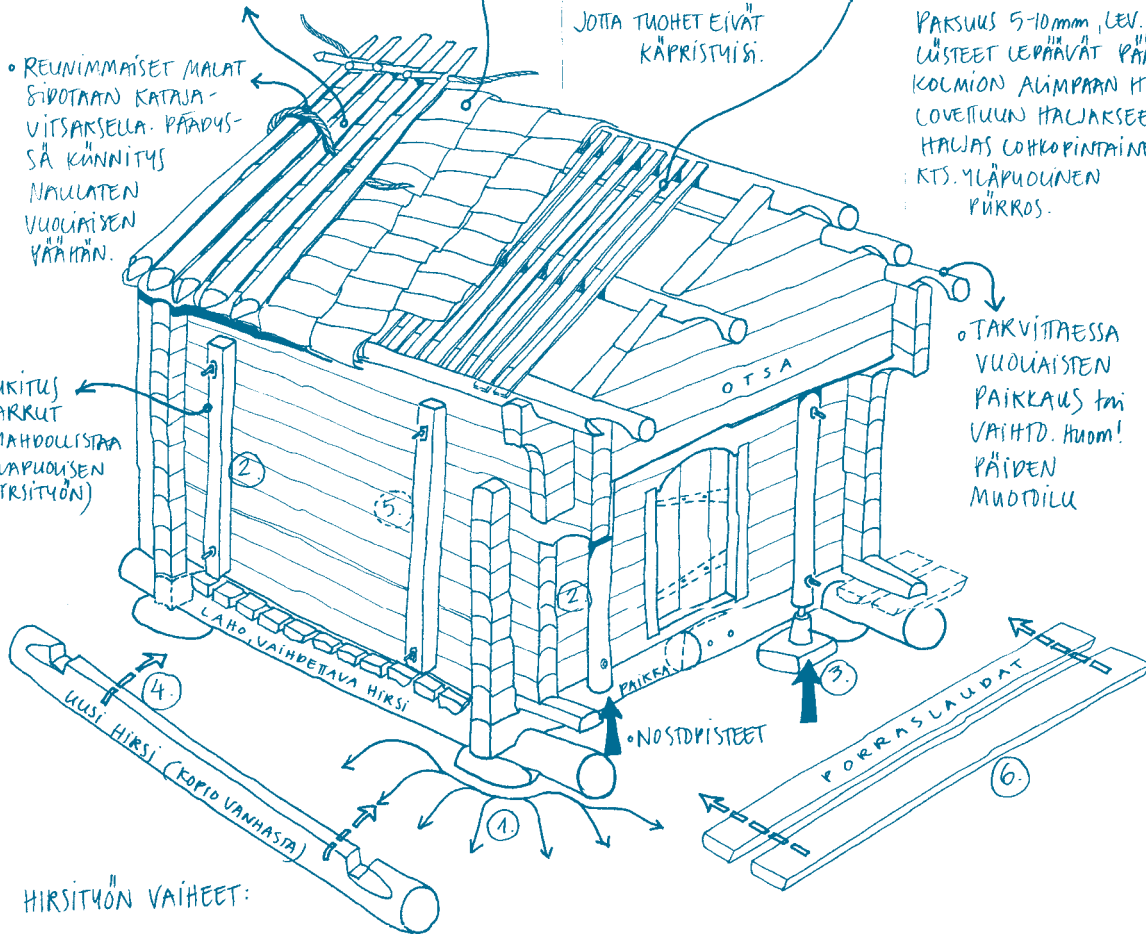 JOTTA TUOHET EIVÄT
KÄPRISTYISI.
PAKSUUS 5-10mm, LEV.
LIISTEET LEPÄÄVÄT PÄÄ
KOLMION ALIMPAAN H
LOVETTUUN HALJAKSEE
HALJAS LOHKOPINTAINE
KTS. YLÄPUOLINEN
PIIRROS.
• REUNIMMAISET MALAT
SIDOTAAN KATAJA-
VITSAKSELLA. PÄÄDYS-
SÄ KIINNITYS
NAULATEN
VUOLIAISEN
PÄÄHÄN.
OTSA
• TARVITTAESSA
VUOLIAISTEN
PAIKKAUS tai
VAIHTO. Huom!
PÄIDEN
MUOTOILU
UKITUS
ARKUT
MAHDOLLISTAA
VAPUOLISEN
IRSITYÖN)
2.
5.
2.
LAHO, VAIHDETTAVA HIRSI
PAIKKA
3.
4.
UUSI HIRSI (KOPIO VANHASTA)
• NOSTOPISTEET
PORRASLAUDAT
6.
1.
HIRSITYÖN VAIHEET: